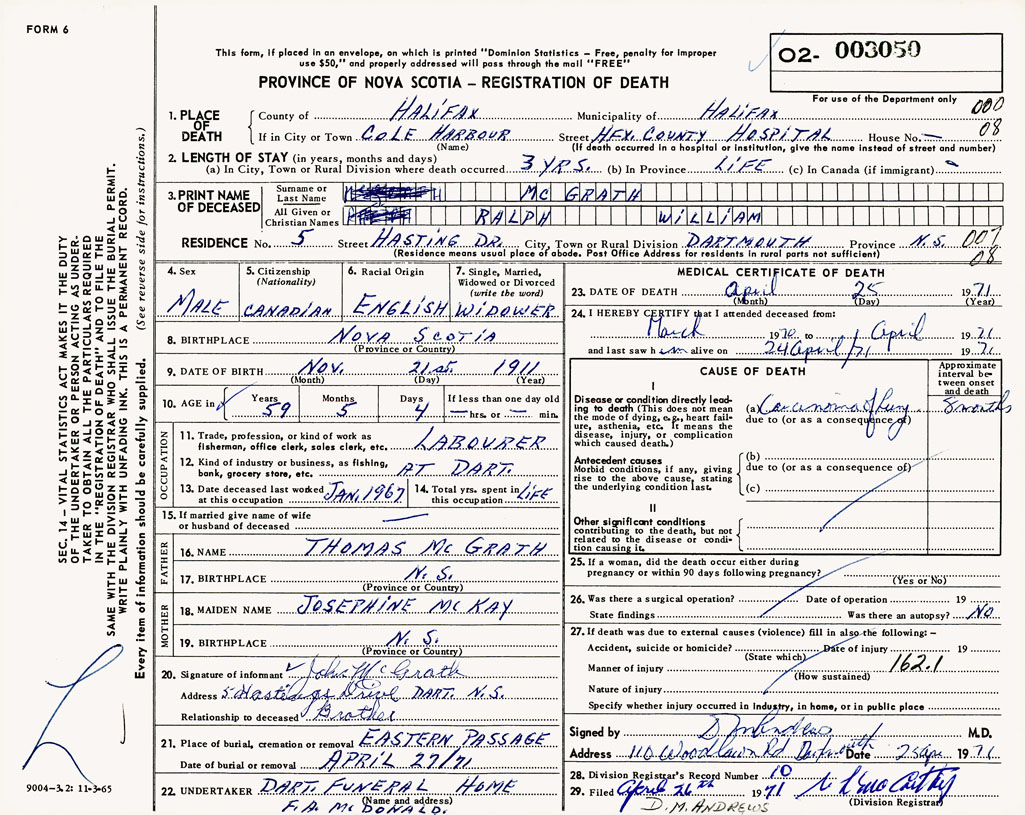 FORM 6
This form, if placed in an envelope, on which is printed "Dominion Statistics – Free, penalty for improper
use $50," and properly addressed will pass through the mail "FREE"
O2- 003050
PROVINCE OF NOVA SCOTIA – REGISTRATION OF DEATH
For use of the Department only
000
08
1. PLACE OF DEATH
County of HALIFAX Municipality of HALIFAX
If in City or Town COLE HARBOUR Street HFX. COUNTY HOSPITAL House No. —
(Name) (If death occurred in a hospital or institution, give the name instead of street and number)
2. LENGTH OF STAY (in years, months and days)
(a) In City, Town or Rural Division where death occurred 3 YRS. (b) In Province LIFE (c) In Canada (if immigrant)
3. PRINT NAME OF DECEASED
Surname or Last Name MC GRATH
All Given or Christian Names RALPH WILLIAM
RESIDENCE No. 5 Street HASTING DR. City, Town or Rural Division DARTMOUTH Province N.S. 007
(Residence means usual place of abode. Post Office Address for residents in rural parts not sufficient) 08
4. Sex MALE
5. Citizenship (Nationality) CANADIAN
6. Racial Origin ENGLISH
7. Single, Married, Widowed or Divorced (write the word) WIDOWER
8. BIRTHPLACE NOVA SCOTIA
(Province or Country)
9. DATE OF BIRTH NOV. 21st. 1911
(Month) (Day) (Year)
10. AGE in Years 59 Months 5 Days 4 If less than one day old — hrs. or — min.
OCCUPATION
11. Trade, profession, or kind of work as fisherman, office clerk, sales clerk, etc. LABOURER
12. Kind of industry or business, as fishing, bank, grocery store, etc. AT DART.
13. Date deceased last worked at this occupation JAN, 1967
14. Total yrs. spent in this occupation LIFE
15. If married give name of wife or husband of deceased —
FATHER
16. NAME THOMAS MC GRATH
17. BIRTHPLACE N. S.
(Province or Country)
MOTHER
18. MAIDEN NAME JOSEPHINE MC KAY
19. BIRTHPLACE N. S.
(Province or Country)
20. Signature of informant John McGrath
Address 5 Hastings Drive DART. N.S.
Relationship to deceased Brother
21. Place of burial, cremation or removal EASTERN PASSAGE
Date of burial or removal APRIL 27/71
22. UNDERTAKER DART. FUNERAL HOME
(Name and address)
F.A. MC DONALD.
MEDICAL CERTIFICATE OF DEATH
23. DATE OF DEATH April 25 1971
(Month) (Day) (Year)
24. I HEREBY CERTIFY that I attended deceased from:
March 1970 to April 1971
and last saw him alive on 24 April/71 1971
CAUSE OF DEATH
Approximate interval between onset and death
I
Disease or condition directly leading to death (This does not mean the mode of dying, e.g., heart failure, asthenia, etc. It means the disease, injury, or complication which caused death.)
(a) Carcinoma of lung 8 months
due to (or as a consequence of)
Antecedent causes
Morbid conditions, if any, giving rise to the above cause, stating the underlying condition last.
(b)
due to (or as a consequence of)
(c)
II
Other significant conditions
contributing to the death, but not related to the disease or condition causing it.
25. If a woman, did the death occur either during pregnancy or within 90 days following pregnancy?
(Yes or No)
26. Was there a surgical operation? Date of operation 19
State findings Was there an autopsy? NO
27. If death was due to external causes (violence) fill in also the following:–
Accident, suicide or homicide? Date of injury 19
(State which)
Manner of injury 162.1
(How sustained)
Nature of injury
Specify whether injury occurred in Industry, in home, or in public place
Signed by D M Andrews M.D.
Address 110 Woodlawn Rd Dartmouth Date 25 Apr. 1971
28. Division Registrar's Record Number 10
29. Filed April 26th 1971
(Division Registrar)
D.M. ANDREWS
SEC. 14 – VITAL STATISTICS ACT MAKES IT THE DUTY
OF THE UNDERTAKER OR PERSON ACTING AS UNDER-
TAKER TO OBTAIN ALL THE PARTICULARS REQUIRED
IN THE "REGISTRATION OF DEATH" AND TO FILE THE
SAME WITH THE DIVISION REGISTRAR WHO SHALL ISSUE THE BURIAL PERMIT.
WRITE PLAINLY WITH UNFADING INK. THIS IS A PERMANENT RECORD.
Every item of information should be carefully supplied. (See reverse side for instructions.)
9004-3.2: 11-3-65